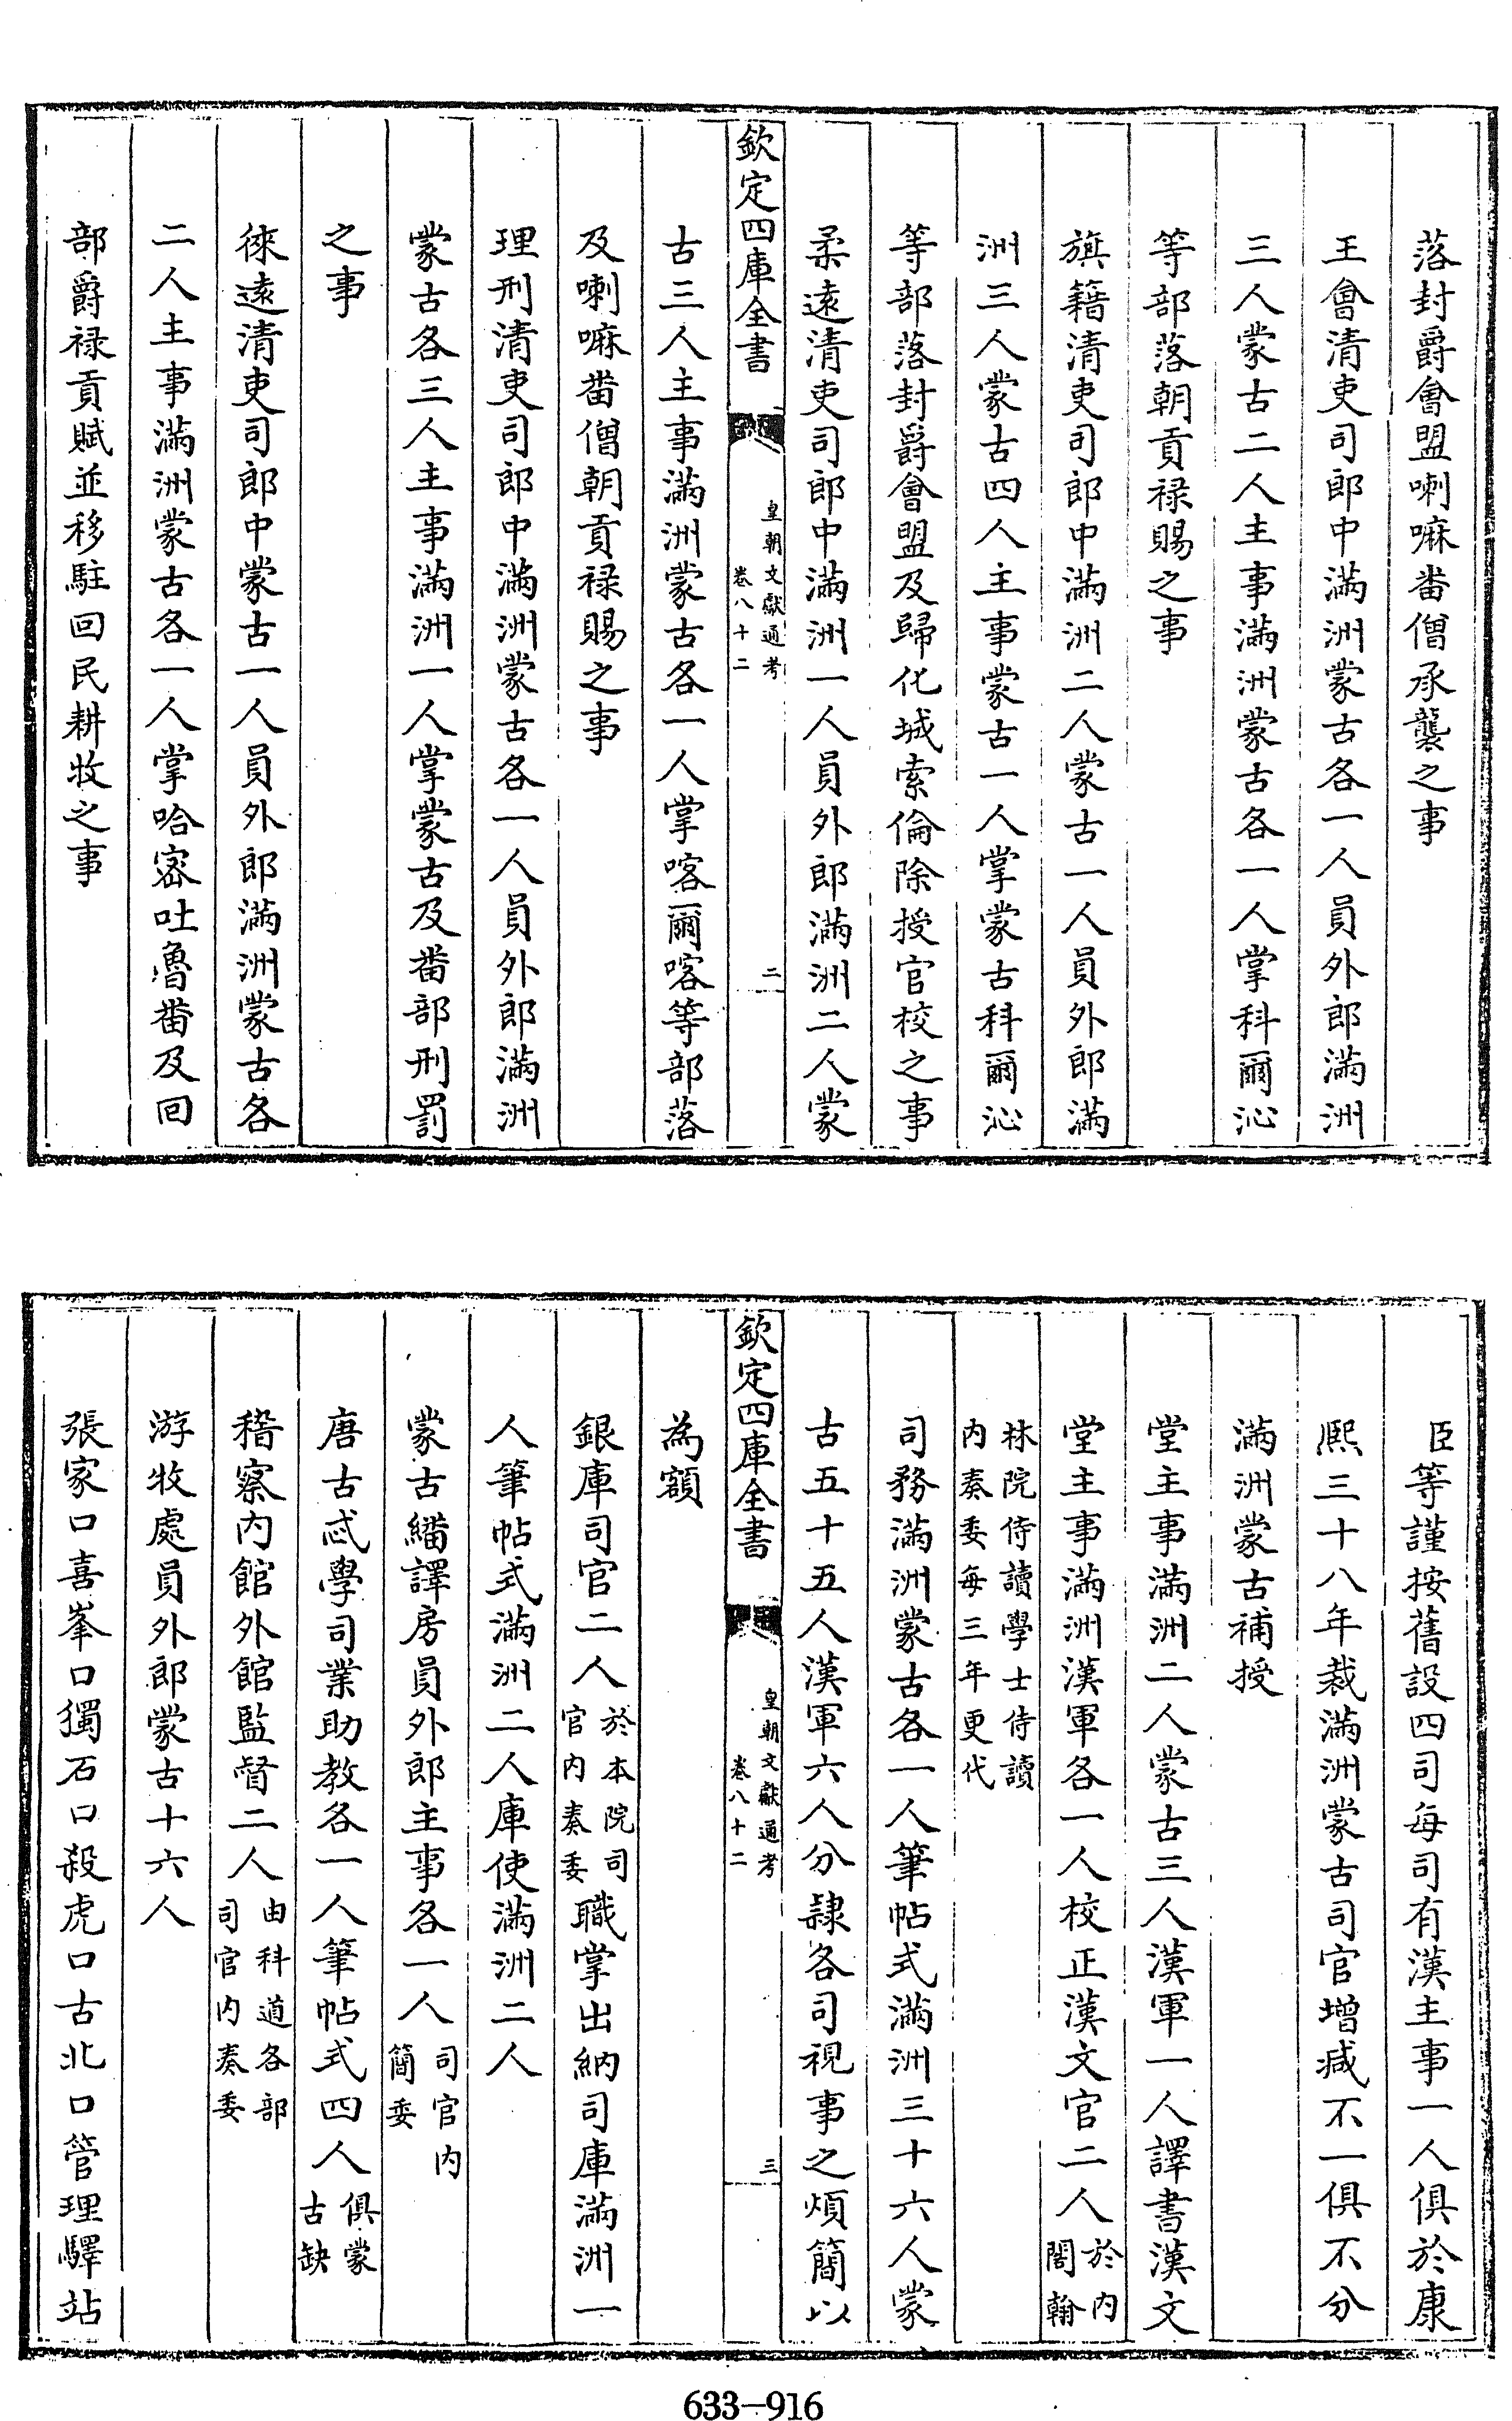 落封爵會盟喇嘛畨僧承襲之事
王會清吏司郎中滿洲蒙古各一人員外郎滿洲
三人蒙古二人主事滿洲蒙古各一人掌科爾沁
等部落朝貢禄賜之事
旗籍清吏司郎中滿洲二人蒙古一人員外郎滿
洲三人蒙古四人主事蒙古一人掌蒙古科爾沁
等部落封爵會盟及歸化城索倫除授官校之事
柔逺清吏司郎中滿洲一人員外郎滿洲二人蒙
欽定四庫全書
皇朝文獻通考
卷八十二
二
古三人主事滿洲蒙古各一人掌喀爾喀等部落
及喇嘛畨僧朝貢禄賜之事
理刑清吏司郎中滿洲蒙古各一人員外郎滿洲
蒙古各三人主事滿洲一人掌蒙古及畨部刑罰
之事
徠逺清吏司郎中蒙古一人員外郎滿洲蒙古各
二人主事滿洲蒙古各一人掌哈宻吐魯畨及回
部爵禄貢賦並移駐回民耕牧之事
臣等謹按舊設四司每司有漢主事一人俱於康
熙三十八年裁滿洲蒙古司官增减不一俱不分
滿洲蒙古補授
堂主事滿洲二人蒙古三人漢軍一人譯書漢文
堂主事滿洲漢軍各一人校正漢文官二人於内閣翰
林院侍讀學士侍讀内奏委每三年更代
司務滿洲蒙古各一人筆帖式滿洲三十六人蒙
古五十五人漢軍六人分隷各司視事之煩簡以
欽定四庫全書
皇朝文獻通考
卷八十二
三
為額
銀庫司官二人於本院司官内奏委職掌出納司庫滿洲一
人筆帖式滿洲二人庫使滿洲二人
蒙古繙譯房員外郎主事各一人司官内簡委
唐古忒學司業助教各一人筆帖式四人俱蒙古缺
稽察内館外館監督二人由科道各部司官内奏委
游牧處員外郎蒙古十六人
張家口喜峯口獨石口殺虎口古北口管理驛站
633-916